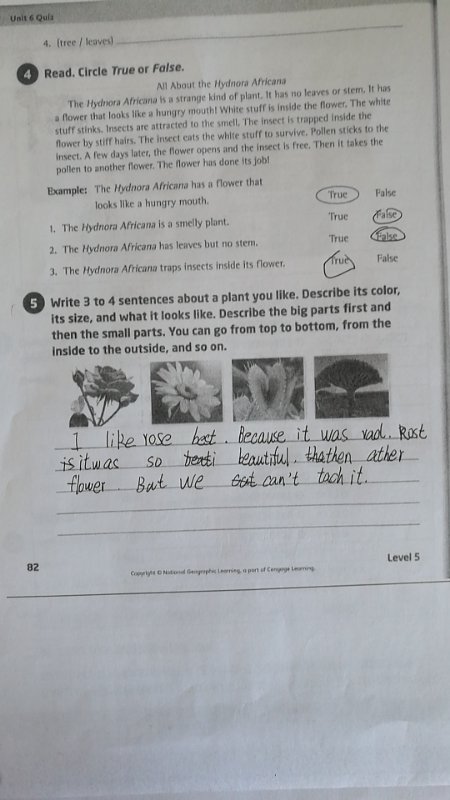 Unit 6 Quiz
4. (tree / leaves)
4 Read. Circle True or False.
All About the Hydnora Africana
The Hydnora Africana is a strange kind of plant. It has no leaves or stem. It has
a flower that looks like a hungry mouth! White stuff is inside the flower. The white
stuff stinks. Insects are attracted to the smell. The insect is trapped inside the
flower by stiff hairs. The insect eats the white stuff to survive. Pollen sticks to the
insect. A few days later, the flower opens and the insect is free. Then it takes the
pollen to another flower. The flower has done its job!
Example: The Hydnora Africana has a flower that
looks like a hungry mouth. True False
1. The Hydnora Africana is a smelly plant. True False
2. The Hydnora Africana has leaves but no stem. True False
3. The Hydnora Africana traps insects inside its flower. True False
5 Write 3 to 4 sentences about a plant you like. Describe its color,
its size, and what it looks like. Describe the big parts first and
then the small parts. You can go from top to bottom, from the
inside to the outside, and so on.
I like rose best. Because it was rad. Rost
is it was so beautiful. then ather
flower. But we can't tach it.
82
Level 5
Copyright © National Geographic Learning, a part of Cengage Learning.